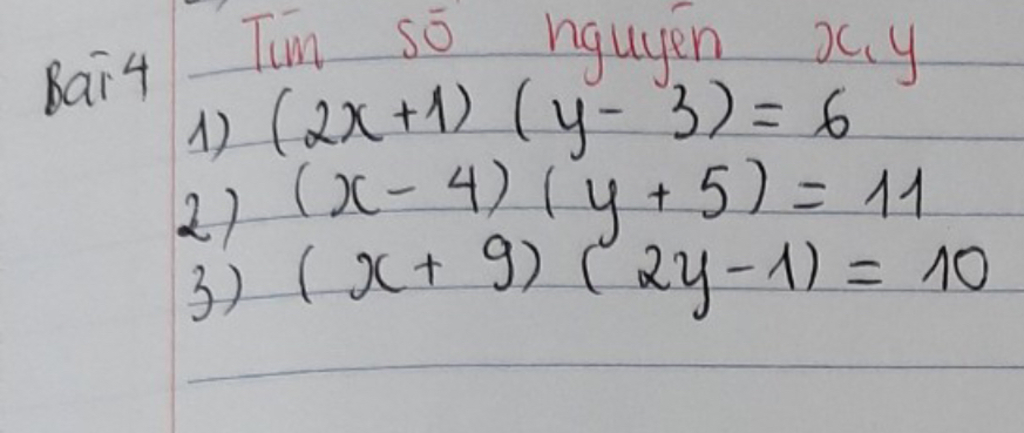 Tìm số nguyên x, y
Bài 4
1) (2x+1) (y - 3) = 6
2) (x - 4) (y + 5) = 11
3) (x + 9) (2y - 1) = 10